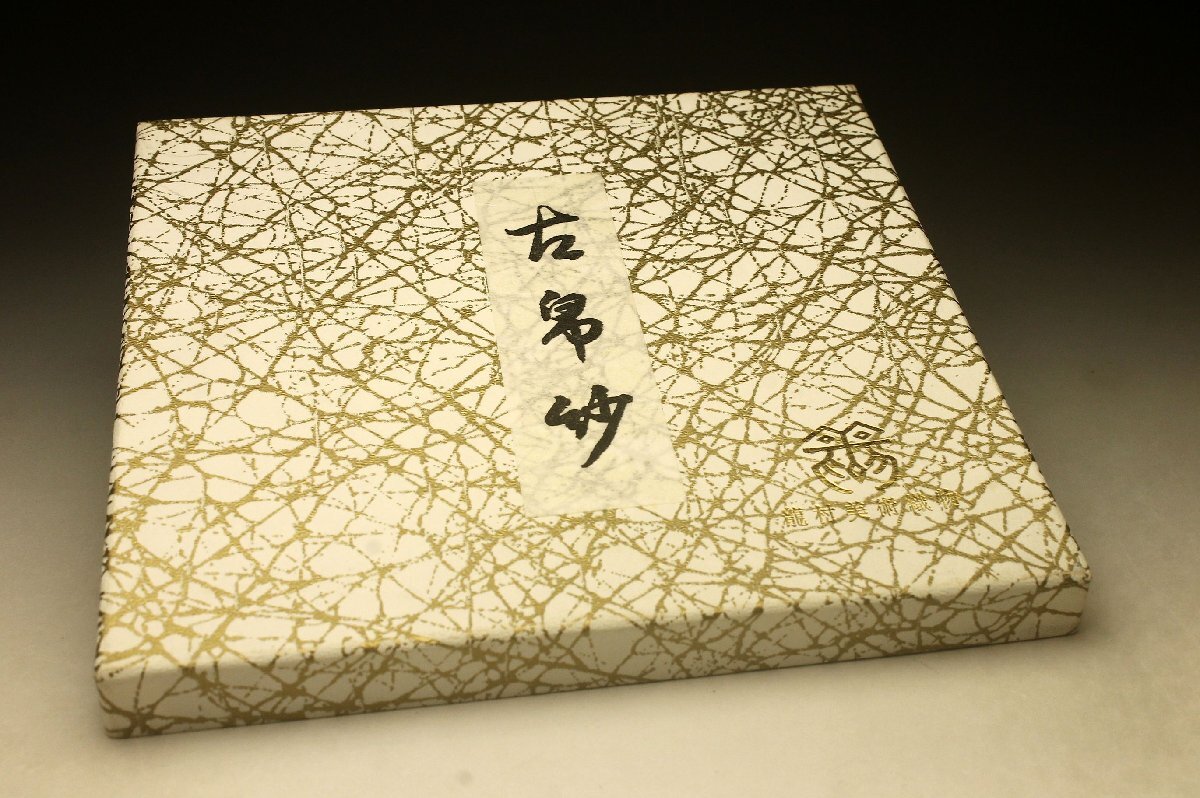 古帛紗
龍村美術織物